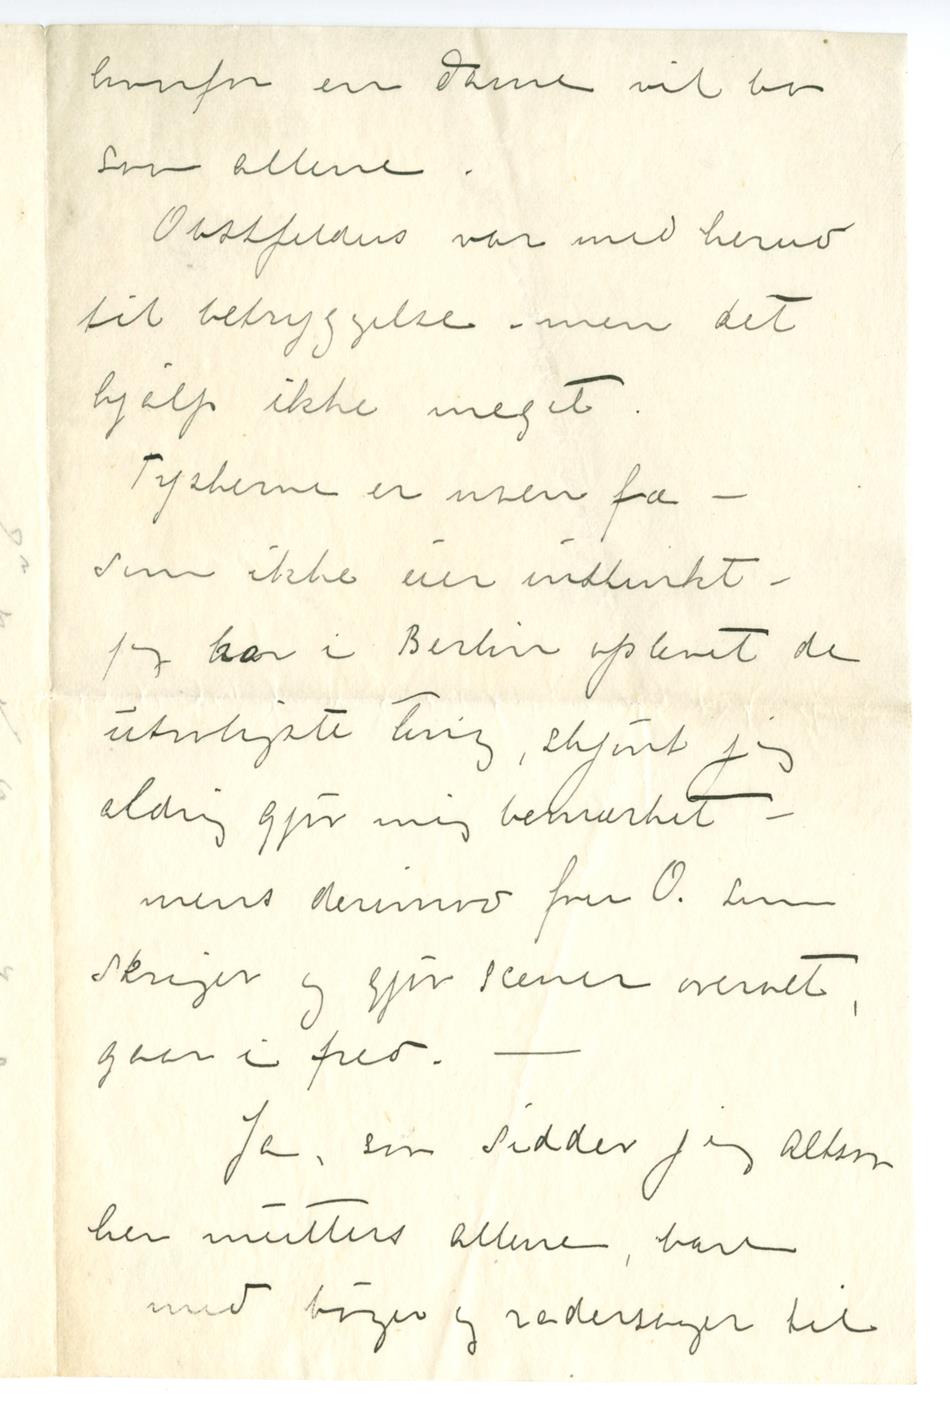 hvorfor en dame vil bo
saa allene.
Obstfelders var med herud
til betryggelse - men det
hjalp ikke meget.
Tyskerne er nogen fæ -
som ikke eier instinkt -
jeg har i Berlin oplevet de
utroligste ting, skjønt jeg
aldrig gjør mig bemærket -
mens derimod fru O. som
skriger og gjør scener overalt,
gaar i fred. —
Ja, saa sidder jeg altsaa
her mutters allene, bare
med bøger og radersager til